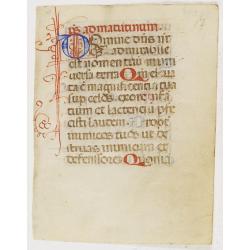 ps ad matutinum
Domine dñs nr̃
q̃ admirabile
est nomen tuũ in uni
uersa terra Qm̃ eleua
ta ẽ magnificentia tua
sup celos. ex ore infã
tium et lactentiũ pfe
cisti laudem. ppt
inimicos tuos ut de
struas inimicum et
defensorem Quoniã